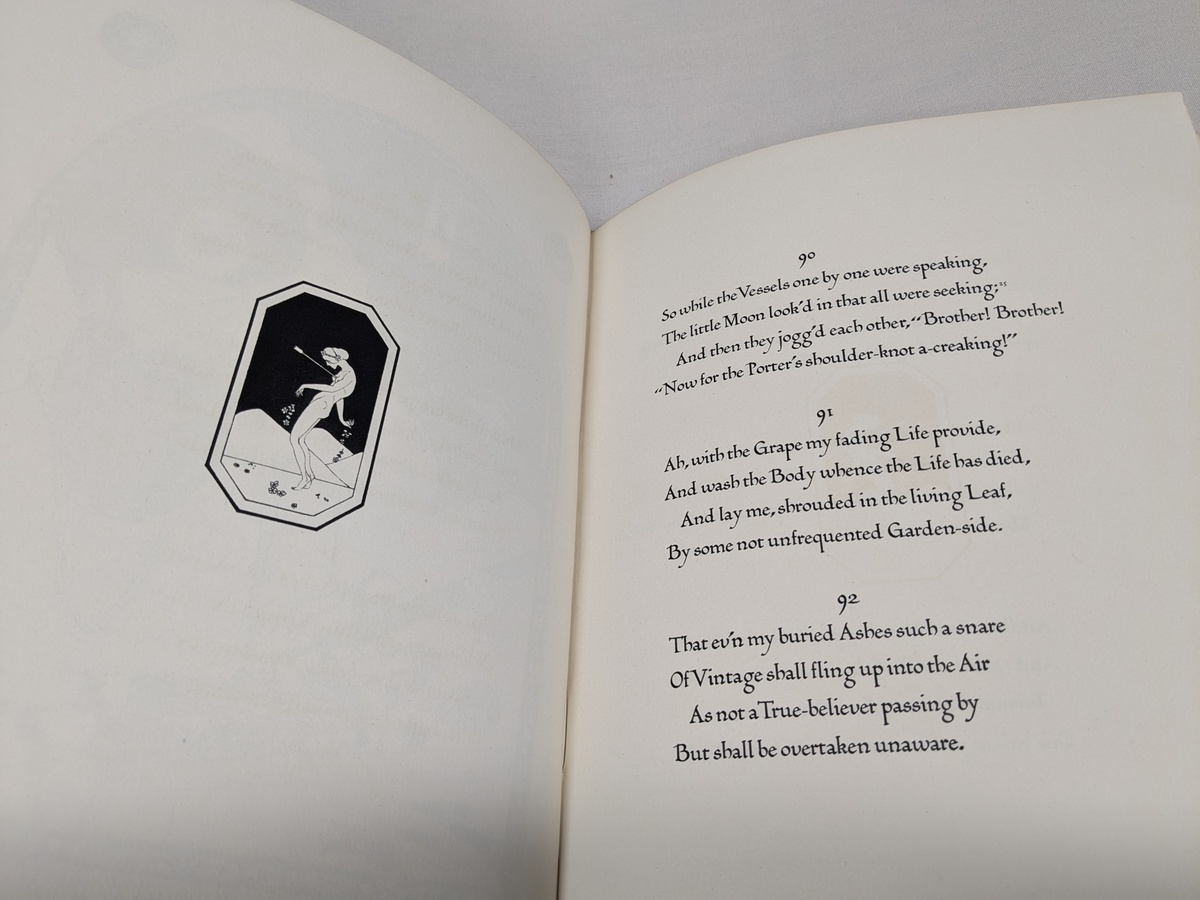 90
So while the Vessels one by one were speaking,
The little Moon look'd in that all were seeking;²⁵
And then they jogg'd each other, “Brother! Brother!
“Now for the Porter's shoulder-knot a-creaking!”
91
Ah, with the Grape my fading Life provide,
And wash the Body whence the Life has died,
And lay me, shrouded in the living Leaf,
By some not unfrequented Garden-side.
92
That ev'n my buried Ashes such a snare
Of Vintage shall fling up into the Air
As not a True-believer passing by
But shall be overtaken unaware.